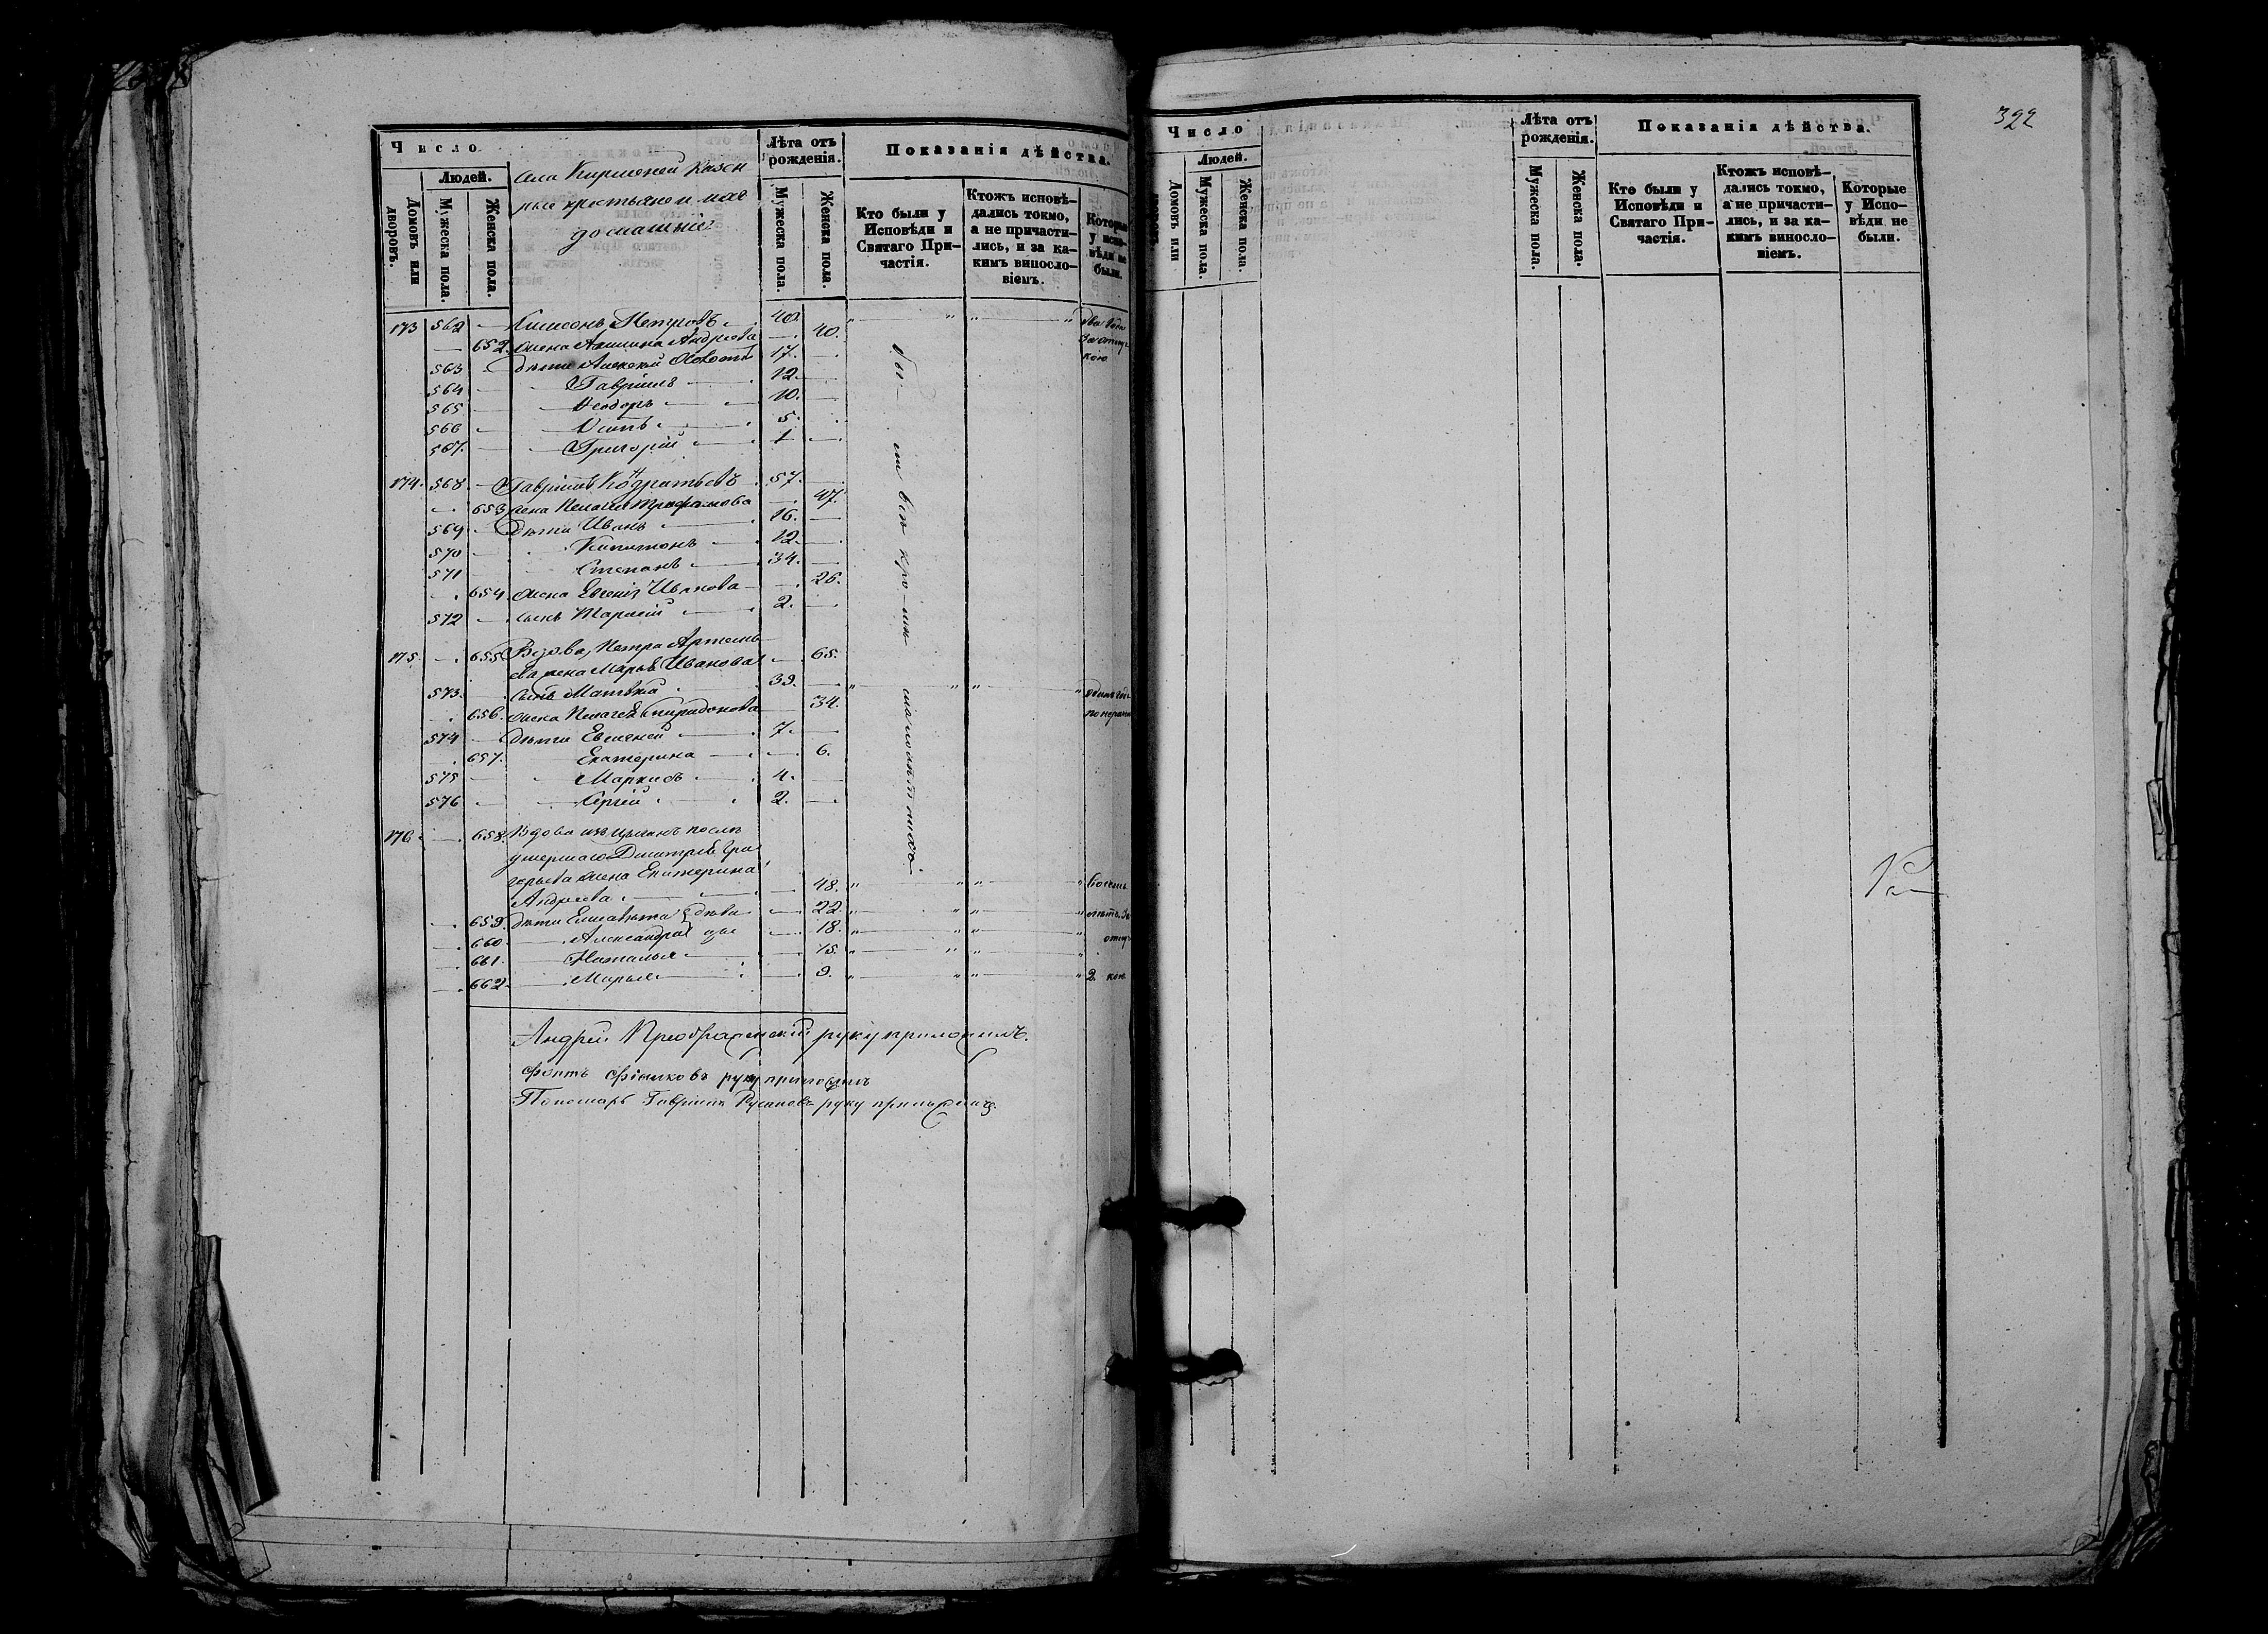 Число
Людей.
Домовъ или дворовъ.
Мужеска пола.
Женска пола.
казен
ные крестьяне и ихъ
домашніе
Лѣта отъ рожденія.
Мужеска пола.
Женска пола.
Показанія дѣйства.
Кто были у Исповѣди и Святаго Причастія.
Ктожъ исповѣдались токмо, а не причастились, и за какимъ винословіемъ.
Которые у исповѣди не были.
173 562 — Петровъ 40. два года
— 652. жена Андреева — 40. за отлуч
563 — дѣти Алексѣй 17. — кою
564 — Гавріилъ — 12. —
565 — Ѳеодоръ — 10. —
566 — Осипъ — 5.
567. — Григорій — 1 —
174. 568 — Гавріилъ Кондратьевъ 57.
— 653 жена Пелагея Трофимова — 47.
569 — дѣти Иванъ — 16. —
570 — Капитонъ — 12. —
571 — Степанъ — 34. —
— 654. жена Евгенія Иванова — 26.
572 — сынъ Тарасій — 2. —
175. — 655 Вдова, Петра Артемь
ева жена Марья Иванова — 65.
573. — сынъ Матвѣй 39. —
— 656. жена Пелагея Спиридонова 34.
574 — дѣти Евгеній — 7. —
657. Екатерина — 6.
575 — Маркъ — 4. —
576 — Сергій — 2. —
176. — 658. Вдова послѣ
умершаго Дмитрія Гри
горьева жена Екатерина
Андреева — 48. восемь
— 659. дѣти Елисавета дѣви — 22 лѣтъ за
— 660. Александра цы — 18. отлу
— 661. Наталья — 15.
— 662. Марья — 9. кою
Андрей Преображенскій руку приложилъ.
руку приложилъ
Пономарь Гавріилъ руку приложилъ.
322
Число
Людей.
Домовъ или
Мужеска пола.
Женска пола.
Лѣта отъ рожденія.
Мужеска пола.
Женска пола.
Показанія дѣйства.
Кто были у Исповѣди и Святаго Причастія.
Ктожъ исповѣдались токмо, а не причастились, и за какимъ винословіемъ.
Которые у Исповѣди не были.